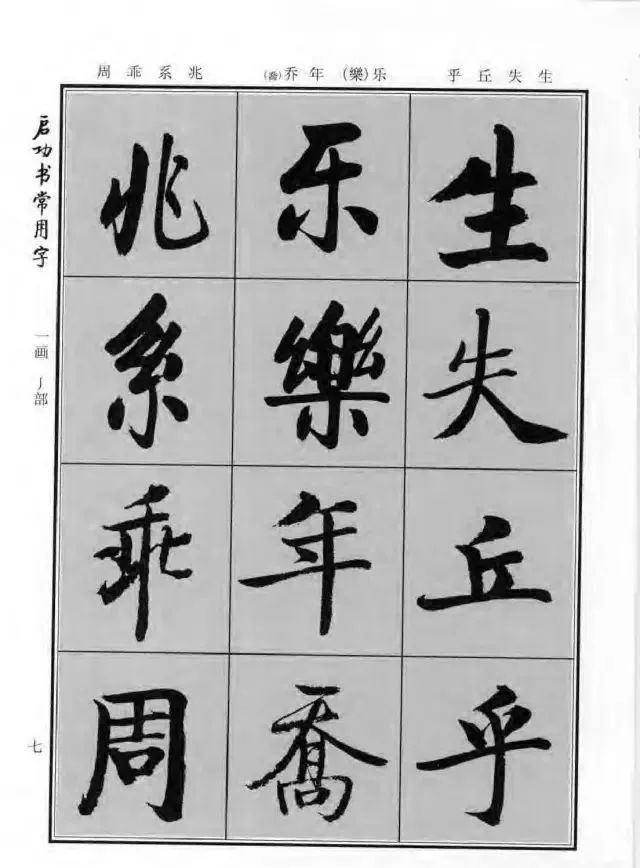 乎丘失生
乔(喬)年(樂)乐
周乖系兆
启功书常用字
一画丿部
七
生失丘乎
乐樂年喬
兆系乖周